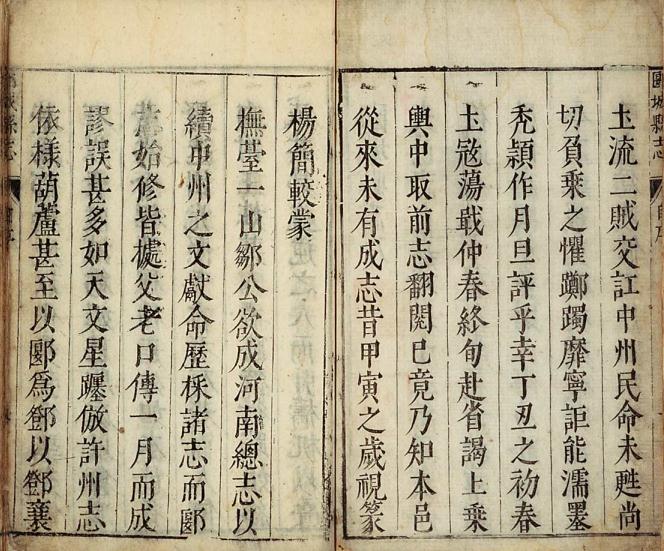 土流二賊交訌中州民命未甦尚
切負乘之懼躑躅靡寧詎能濡墨
禿穎作月旦評乎幸丁丑之初春
土寇蕩戢仲春終旬赴省謁上乗
輿中取前志翻閱已竟乃知本邑
從來未有成志昔甲寅之歲視篆
楊簡較蒙
撫臺一山鄒公欲成河南總志以
續中州之文獻命歷採諸志而郾
志始修皆據父老口傳一月而成
謬誤甚多如天文星躔倣許州志
依樣葫蘆甚至以郾爲鄧以鄧襄
郾城縣志